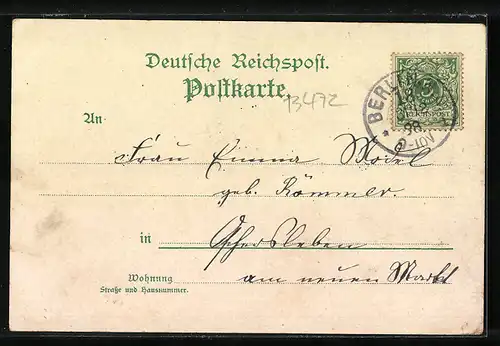 Deutsche Reichspost.
Postkarte.
13472
BERLIN
REICHSPOST
98
9-10V
An
Frau Emma Model
geb. Kömmer.
in Aschersleben
Wohnung am neuen Markt
Straße und Hausnummer.